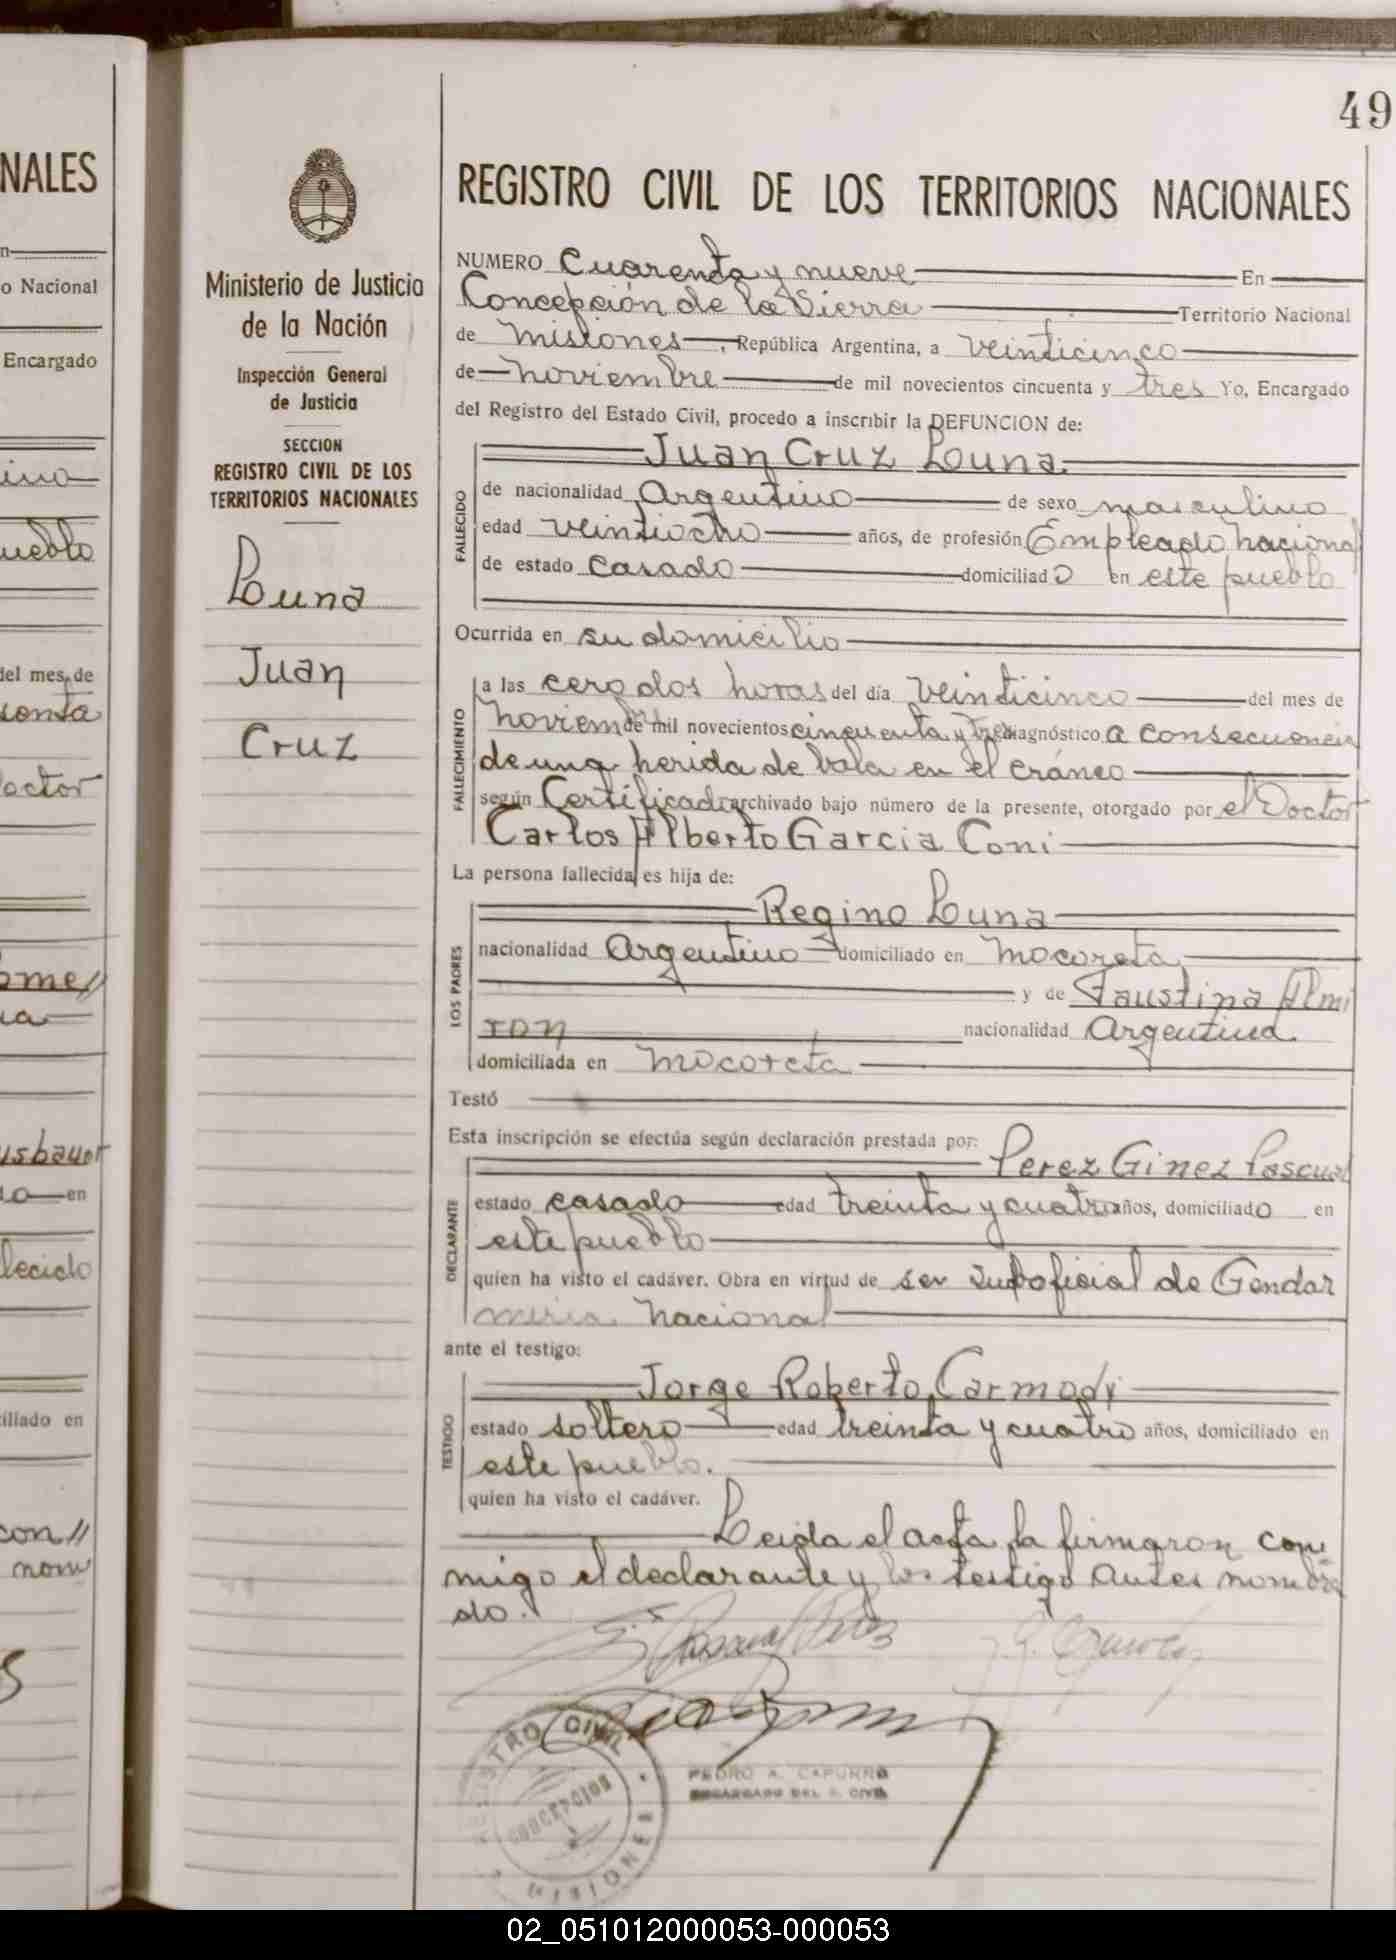 49
NALES
REGISTRO CIVIL DE LOS TERRITORIOS NACIONALES
Ministerio de Justicia
de la Nación
Inspección General
de Justicia
SECCION
REGISTRO CIVIL DE LOS
TERRITORIOS NACIONALES
Luna
Juan
Cruz
NUMERO Cuarenta y nueve En
Concepción de la Sierra Territorio Nacional
de Misiones, República Argentina, a veinticinco
de noviembre de mil novecientos cincuenta y tres Yo, Encargado
del Registro del Estado Civil, procedo a inscribir la DEFUNCION de:
Juan Cruz Luna
FALLECIDO
de nacionalidad Argentino de sexo masculino
edad veintiocho años, de profesión Empleado nacional
de estado casado domiciliado en este pueblo
Ocurrida en su domicilio
FALLECIMIENTO
a las cero dos horas del día veinticinco del mes de
noviem de mil novecientos cincuenta y tres diagnóstico a consecuencia
de una herida de bala en el cráneo
según Certificado archivado bajo número de la presente, otorgado por el Doctor
Carlos Alberto Garcia Coni
La persona fallecida es hija de:
LOS PADRES
Regino Luna
nacionalidad Argentino domiciliado en Mocoreta
y de Faustina Almi
ron nacionalidad Argentina
domiciliada en Mocoreta
Testó
Esta inscripción se efectúa según declaración prestada por:
DECLARANTE
Perez Ginez Pascual
estado casado edad treinta y cuatro años, domiciliado en
este pueblo
quien ha visto el cadáver. Obra en virtud de ser suboficial de Gendar
meria nacional
ante el testigo:
TESTIGO
Jorge Roberto Carmody
estado soltero edad treinta y cuatro años, domiciliado en
este pueblo.
quien ha visto el cadáver.
Leida el acta, la firmaron con
migo el declarante y los testigo antes nombra
do.
REGISTRO CIVIL
CONCEPCION
MISIONES
PEDRO A. CAPURRO
ENCARGADO DEL R. CIVIL
o Nacional
Encargado
ino
ueblo
del mes de
octor
ome//
ia
en
lecido
iliado en
con//
nom
02_051012000053-000053